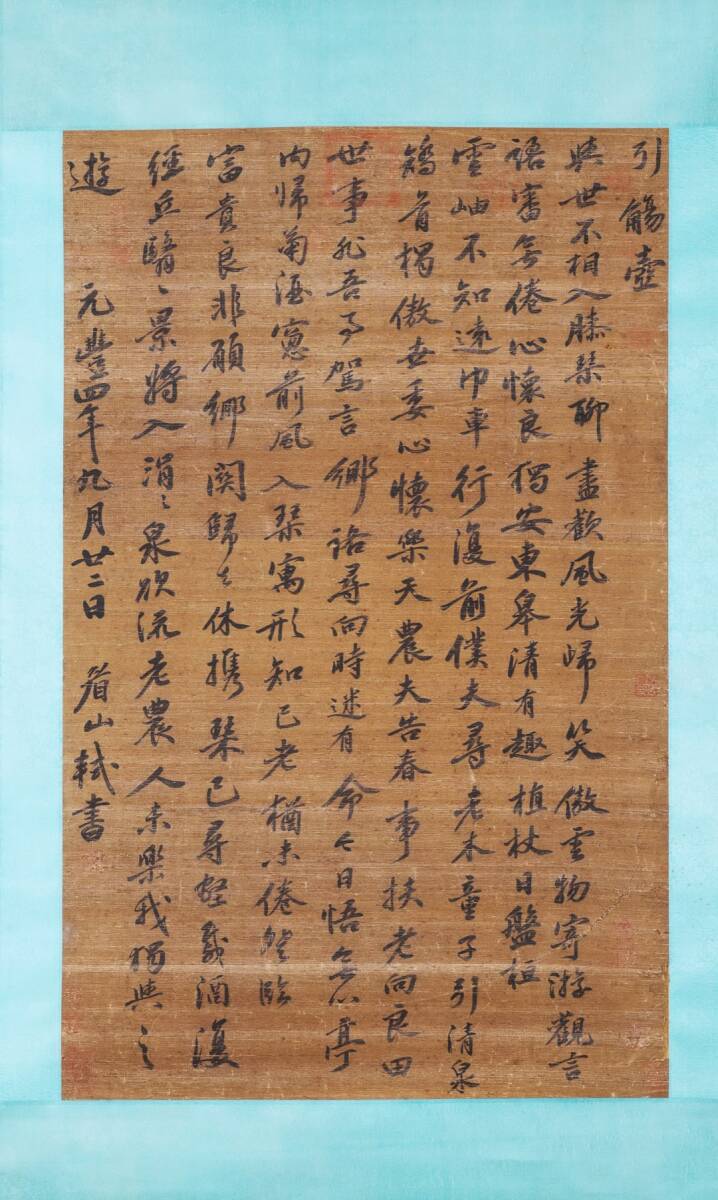 引觴壺
與世不相入膝琴聊盡歡風光歸笑傲雲物寄游觀言
語審無倦心懷良獨安東皋清有趣植杖日盤桓
雲岫不知遠巾車行復前僕夫尋老木童子引清泉
矯首獨傲世委心懷樂天農夫告春事扶老向良田
世事非吾事駕言鄉路尋向時迷有命今日悟無心亭
內歸菊酒窓前風入琴寓形知已老猶未倦登臨
富貴良非願鄉關歸去休攜琴已尋壑載酒復
經丘翳〻景將入涓〻泉欲流老農人未樂我獨與之
遊 元豐四年九月廿二日 眉山軾書